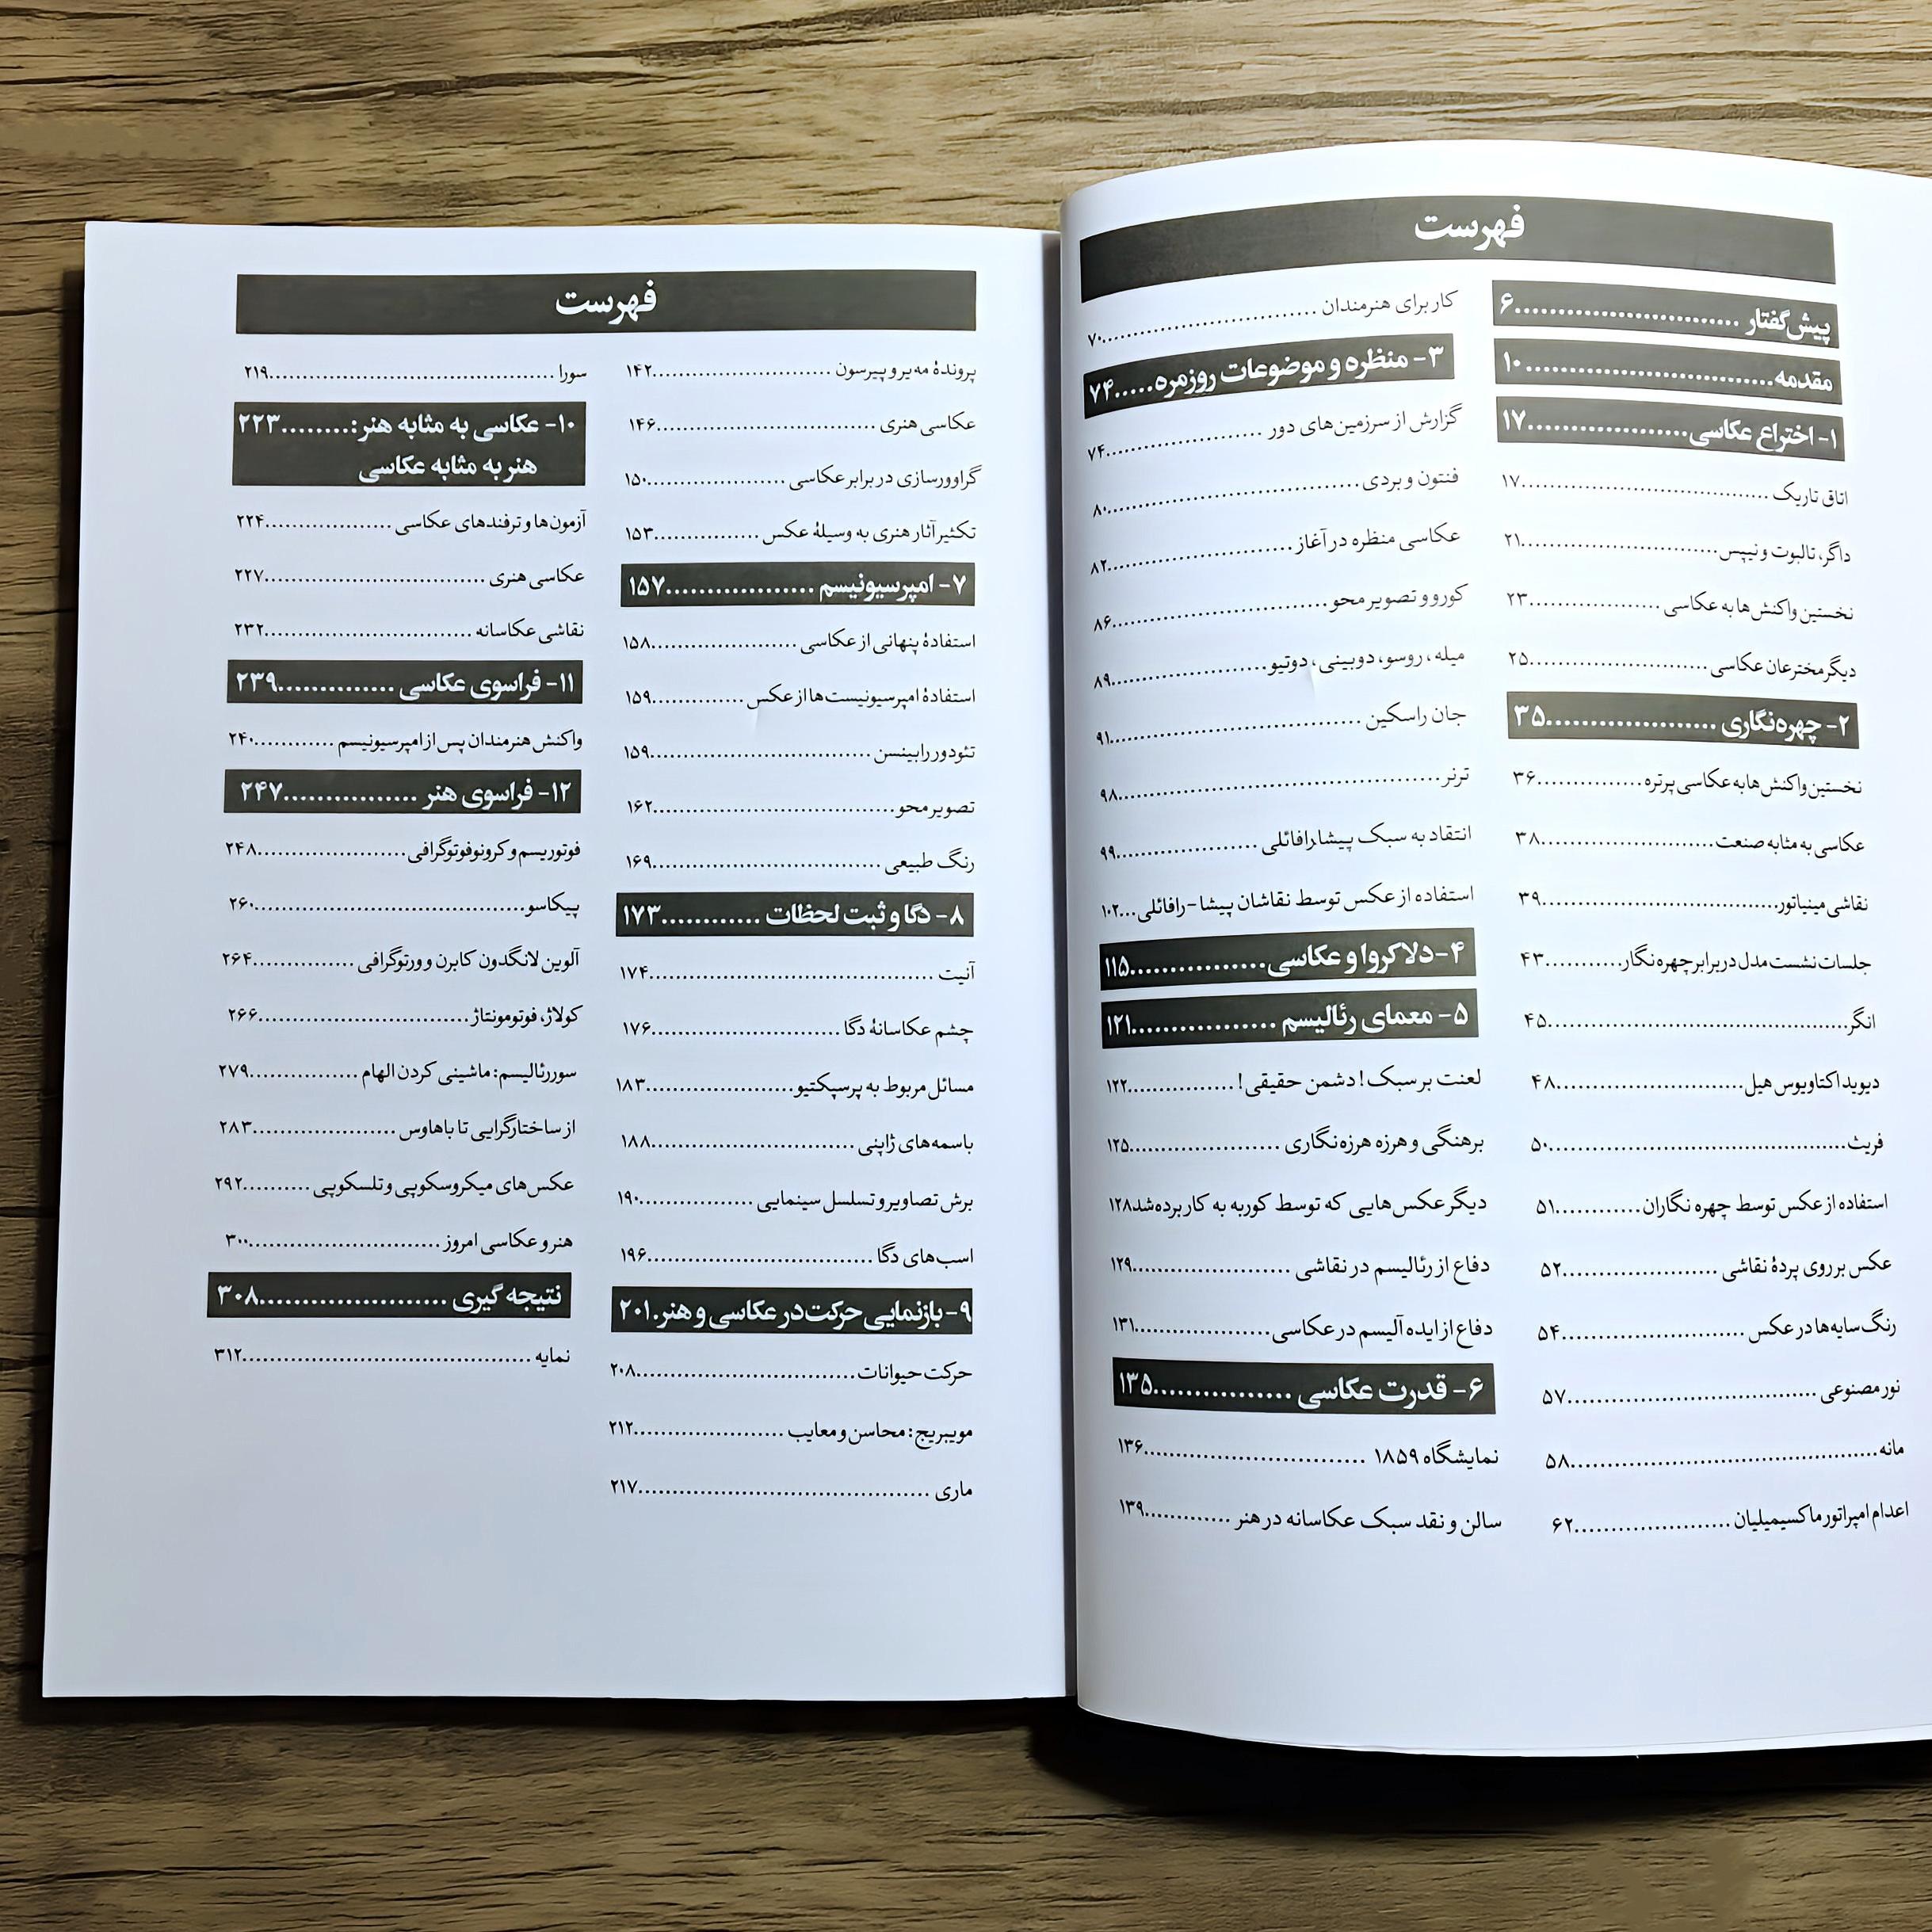 فهرست
پیش‌گفتار ..........................۶
مقدمه..............................۱۰
۱- اختراع عکاسی...................۱۷
اتاق تاریک ...................................۱۷
داگر، تالبوت و نیپس............................۲۱
نخستین واکنش‌ها به عکاسی ...................۲۳
دیگر مخترعان عکاسی ..........................۲۵
۲- چهره‌نگاری ....................۳۵
نخستین واکنش‌ها به عکاسی پرتره...............۳۶
عکاسی به مثابه صنعت.........................۳۸
نقاشی مینیاتور..................................۳۹
جلسات نشست مدل در برابر چهره نگار...........۴۳
انگر...........................................۴۵
دیوید اکتاویوس هیل...........................۴۸
فریث..........................................۵۰
استفاده از عکس توسط چهره نگاران............۵۱
عکس بر روی پردهٔ نقاشی ......................۵۲
رنگ سایه‌ها در عکس ..........................۵۴
نور مصنوعی ....................................۵۷
مانه...........................................۵۸
اعدام امپراتور ماکسیمیلیان ......................۶۲
کار برای هنرمندان ...............................۷۰
۳- منظره و موضوعات روزمره.....۷۴
گزارش از سرزمین‌های دور ......................۷۴
فنتون و بردی....................................۸۰
عکاسی منظره در آغاز...........................۸۲
کورو و تصویر محو...............................۸۶
میله، روسو، دوبینی، دوتیو......................۸۹
جان راسکین ....................................۹۱
ترنر............................................۹۸
انتقاد به سبک پیشارافائلی .....................۹۹
استفاده از عکس توسط نقاشان پیشا-رافائلی...۱۰۲
۴- دلاکروا و عکاسی................۱۱۵
۵- معمای رئالیسم .................۱۲۱
لعنت بر سبک! دشمن حقیقی! ................۱۲۲
برهنگی و هرزه هرزه‌نگاری ......................۱۲۵
دیگر عکس‌هایی که توسط کوربه به کار برده شد۱۲۸
دفاع از رئالیسم در نقاشی .......................۱۲۹
دفاع از ایده آلیسم در عکاسی....................۱۳۱
۶- قدرت عکاسی .................۱۳۵
نمایشگاه ۱۸۵۹ ................................۱۳۶
سالن و نقد سبک عکاسانه در هنر .............۱۳۹
فهرست
پروندهٔ مه یر و پیرسون ..........................۱۴۲
عکاسی هنری ................................۱۴۶
گراوورسازی در برابر عکاسی ....................۱۵۰
تکثیر آثار هنری به وسیلهٔ عکس ...............۱۵۳
۷- امپرسیونیسم ..................۱۵۷
استفادهٔ پنهانی از عکاسی ......................۱۵۸
استفادهٔ امپرسیونیست‌ها از عکس ..............۱۵۹
تئودور رابینسن ................................۱۵۹
تصویر محو....................................۱۶۲
رنگ طبیعی ..................................۱۶۹
۸- دگا و ثبت لحظات ............۱۷۳
آنیت .........................................۱۷۴
چشم عکاسانهٔ دگا ............................۱۷۶
مسائل مربوط به پرسپکتیو......................۱۸۳
باسمه‌های ژاپنی ..............................۱۸۸
برش تصاویر و تسلسل سینمایی .................۱۹۰
اسب‌های دگا .................................۱۹۶
۹- بازنمایی حرکت در عکاسی و هنر.۲۰۱
حرکت حیوانات................................۲۰۸
مویبریج: محاسن و معایب ......................۲۱۲
ماری .........................................۲۱۷
سورا .........................................۲۱۹
۱۰- عکاسی به مثابه هنر:........۲۲۳
هنر به مثابه عکاسی
آزمون‌ها و ترفندهای عکاسی ...................۲۲۴
عکاسی هنری ................................۲۲۷
نقاشی عکاسانه ..............................۲۳۲
۱۱- فراسوی عکاسی ..............۲۳۹
واکنش هنرمندان پس از امپرسیونیسم ............۲۴۰
۱۲- فراسوی هنر ................۲۴۷
فوتوریسم و کرونوفوتوگرافی......................۲۴۸
پیکاسو.......................................۲۶۰
آلوین لانگدون کابرن و ورتوگرافی ...............۲۶۴
کولاژ، فوتومونتاژ...............................۲۶۶
سوررئالیسم: ماشینی کردن الهام ................۲۷۹
از ساختارگرایی تا باهاوس .....................۲۸۳
عکس‌های میکروسکوپی و تلسکوپی ..........۲۹۲
هنر و عکاسی امروز ............................۳۰۰
نتیجه گیری ......................۳۰۸
نمایه .........................................۳۱۲